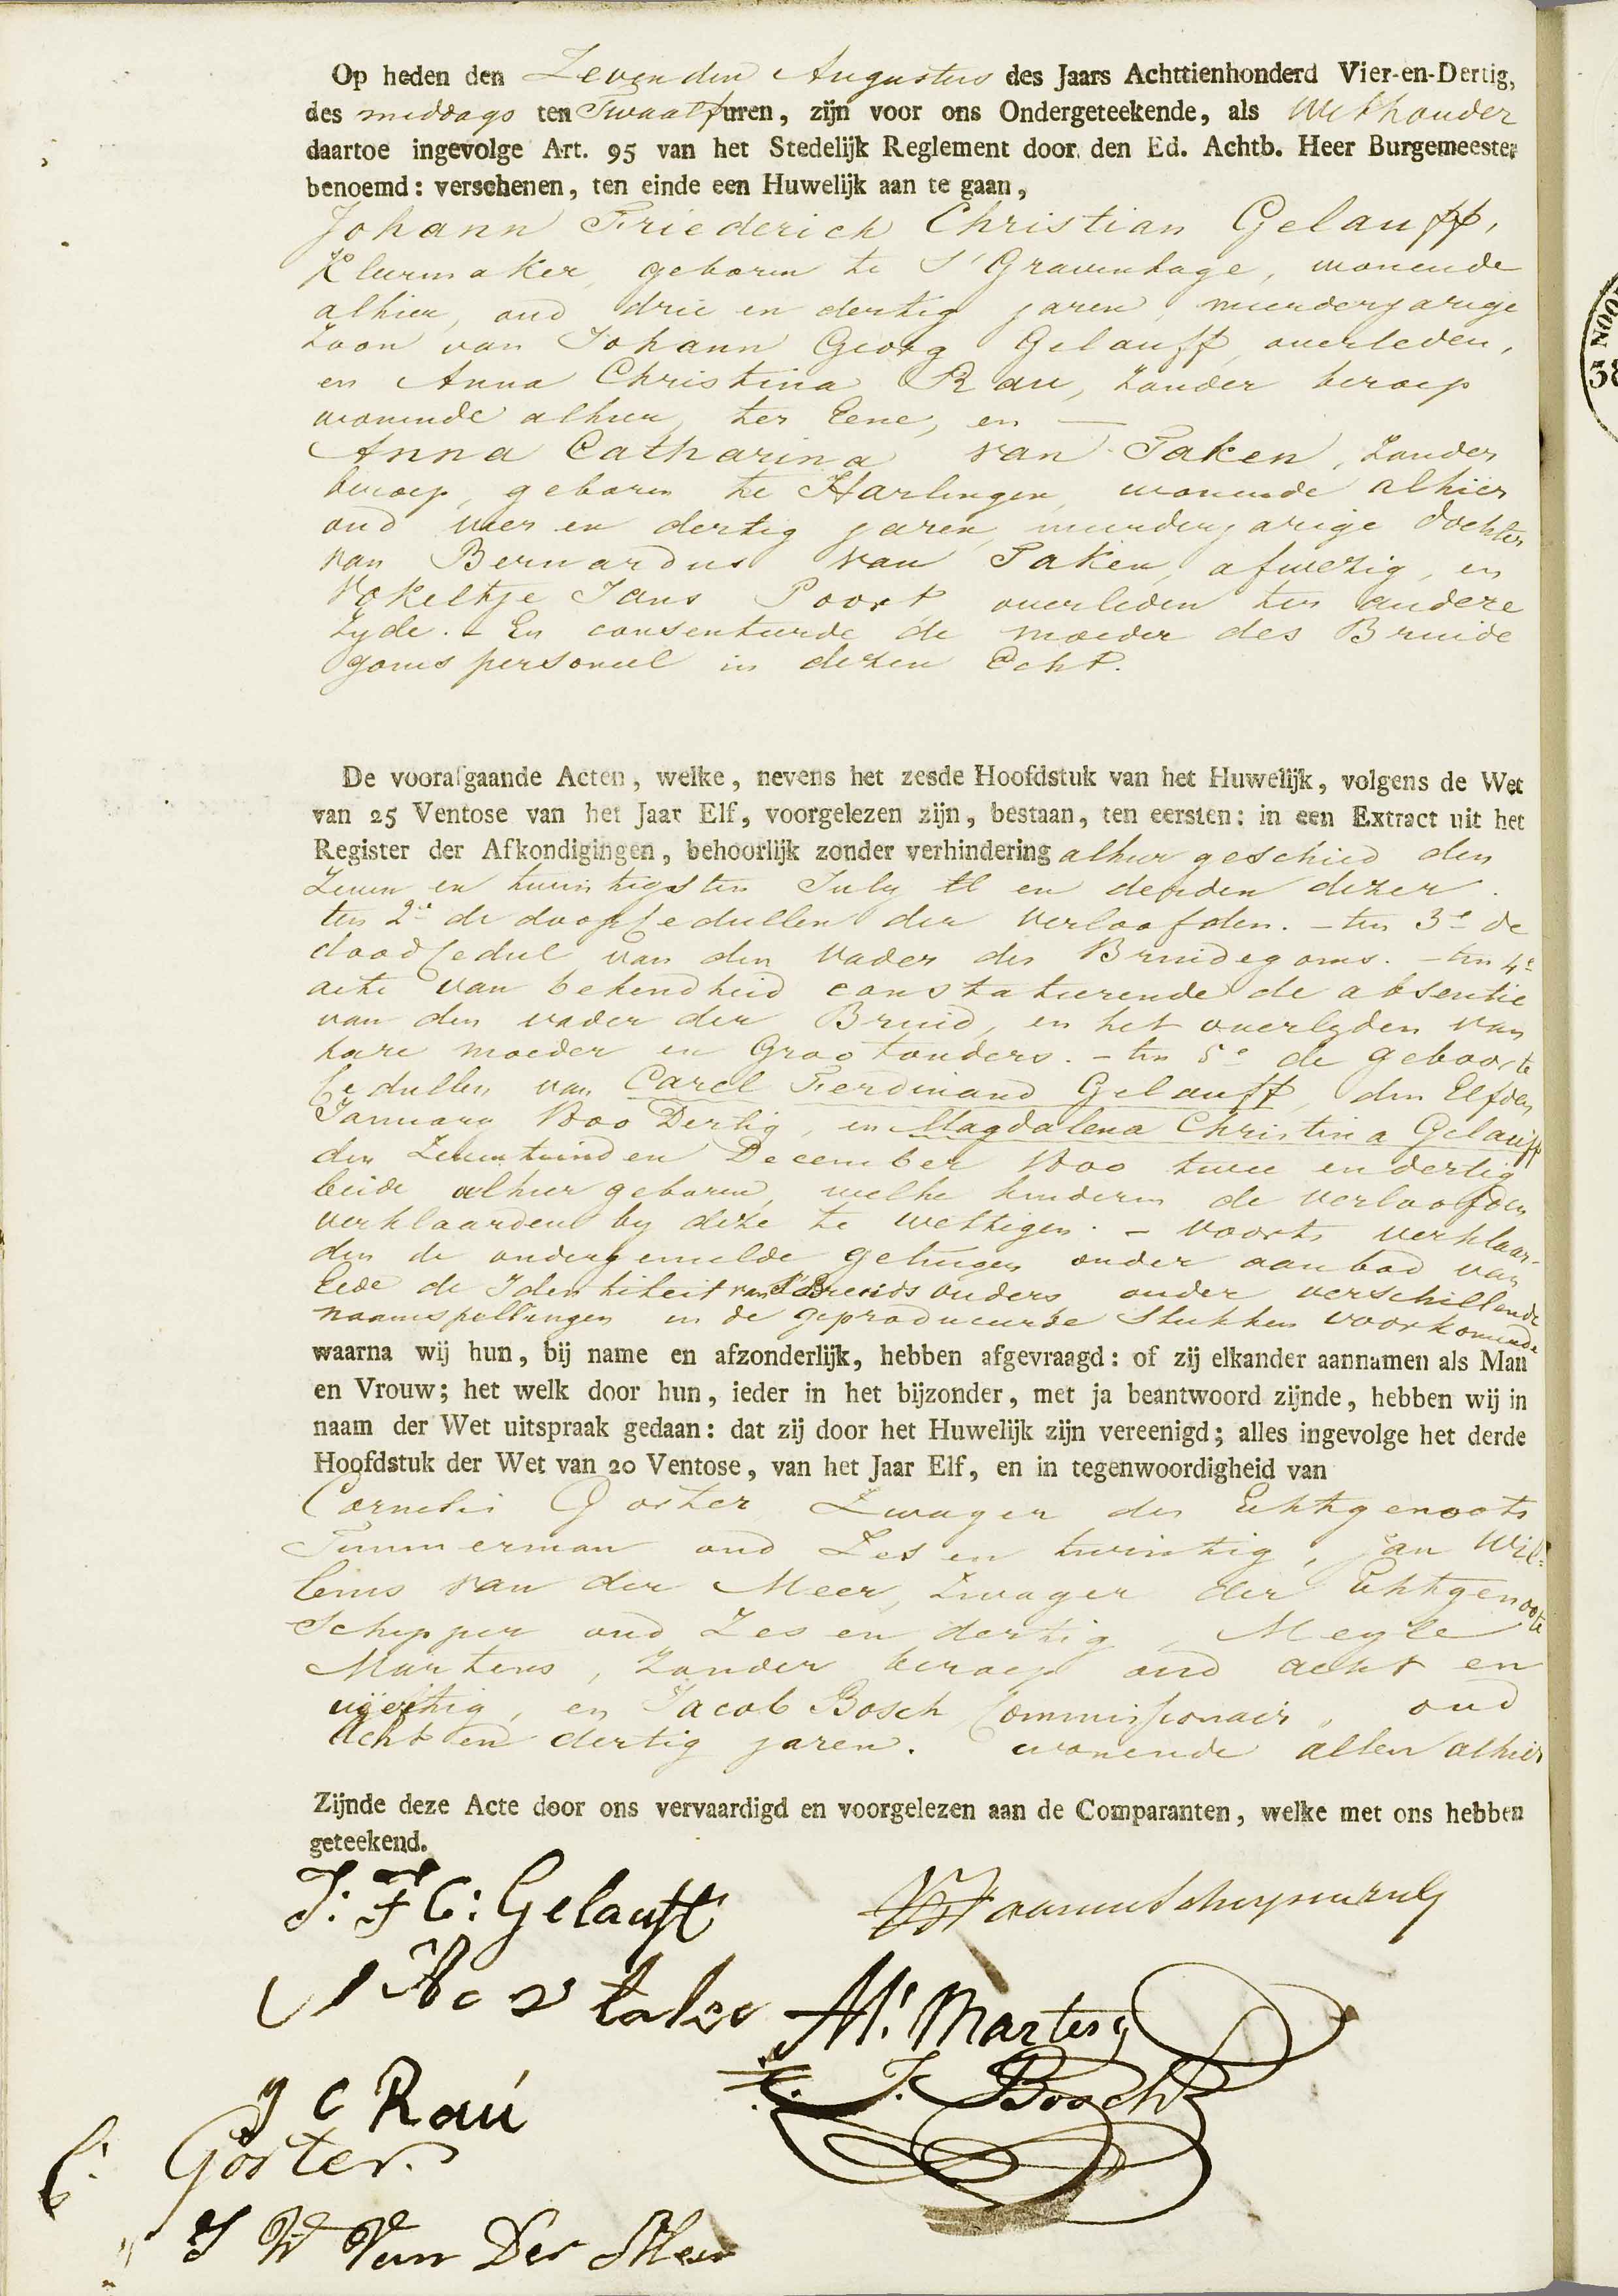 Op heden den Zevenden Augustus des Jaars Achttienhonderd Vier-en-Dertig,
des middags ten Twaalf uren, zijn voor ons Ondergeteekende, als Wethouder
daartoe ingevolge Art. 95 van het Stedelijk Reglement door den Ed. Achtb. Heer Burgemeester
benoemd: verschenen, ten einde een Huwelijk aan te gaan,
Johann Friederich Christian Gelauff,
Kleermaker, geboren te S'Gravenhage, wonende
alhier, oud drie en dertig jaren, meerderjarige
Zoon van Johann Georg Gelauff, overleden,
en Anna Christina Rau, zonder beroep
wonende alhier, ter Eene, en —
Anna Catharina van Taken, zonder
beroep, geboren te Harlingen, wonende alhier
oud vier en dertig jaren, meerderjarige dochter
van Bernardus van Taken, afwezig, en
Vokeltje Jans Poort overleden ter andere
zyde. - En consenteerde de moeder des Bruide
goms personeel in dezen Echt.
De voorafgaande Acten, welke, nevens het zesde Hoofdstuk van het Huwelijk, volgens de Wet
van 25 Ventose van het Jaar Elf, voorgelezen zijn, bestaan, ten eersten: in een Extract uit het
Register der Afkondigingen, behoorlijk zonder verhindering alhier geschied den
Zeven en twintigsten July ll en derden dezer.
ten 2e de doopcedullen der verloofden. - ten 3e de
doodcedul van den vader des Bruidegoms. - ten 4e
acte van bekendheid constateerende de absentie
van den vader der Bruid, en het overlyden van
hare moeder en Grootouders. - ten 5e de geboorte
cedullen van Carel Ferdinand Gelauff, den Elfden
January 1800 Dertig, en Magdalena Christina Gelauff
den Zeventienden December 1800 twee en dertig
beide alhier geboren, welke kinderen de verloofden
verklaarden by deze te wettigen. - voorts verklaar-
den de ondergemelde getuigen onder aanbod van
Eede de Identiteit van S'Bruids ouders onder verschillende
naamspellingen in de geproduceerde Stukken voorkomende
waarna wij hun, bij name en afzonderlijk, hebben afgevraagd: of zij elkander aannamen als Man
en Vrouw; het welk door hun, ieder in het bijzonder, met ja beantwoord zijnde, hebben wij in
naam der Wet uitspraak gedaan: dat zij door het Huwelijk zijn vereenigd; alles ingevolge het derde
Hoofdstuk der Wet van 20 Ventose, van het Jaar Elf, en in tegenwoordigheid van
Cornelis Goster Zwager des Echtgenoots
Timmerman oud Zes en twintig, Jan Wil=
lems van der Meer, Zwager der Echtgenoote
Schipper oud Zes en dertig, Meyle
Martens, zonder beroep oud acht en
veertig, en Jacob Bosch Commissionair, oud
Acht en dertig jaren. wonende allen alhier
Zijnde deze Acte door ons vervaardigd en voorgelezen aan de Comparanten, welke met ons hebben
geteekend.
J: F C: Gelauff
M: Martens
J. Bosch
C Rau
C: Goster.
J W Van Der Meer